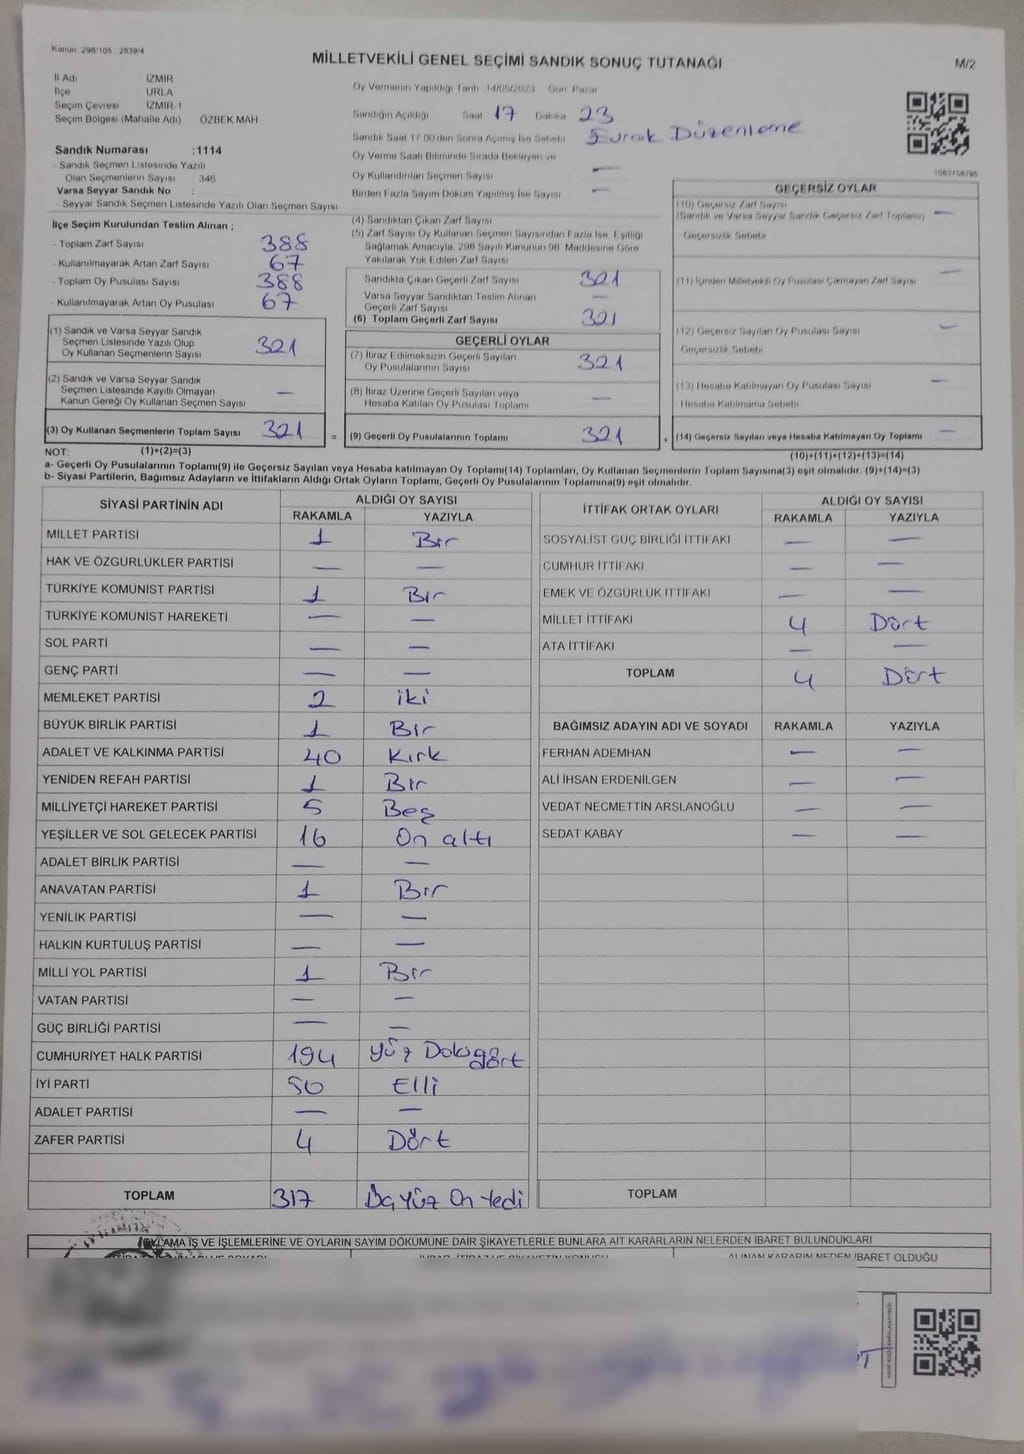 Kanun: 298/105 : 2839/4
MİLLETVEKİLİ GENEL SEÇİMİ SANDIK SONUÇ TUTANAĞI
M/2
İl Adı İZMİR
İlçe URLA
Seçim Çevresi İZMİR-1
Seçim Bölgesi (Mahalle Adı) ÖZBEK MAH
Oy Vermenin Yapıldığı Tarih 14/05/2023 Gün Pazar
Sandığın Açıldığı Saat 17 Dakika 23
Sandık Saat 17:00'den Sonra Açılmış İse Sebebi Evrak Düzenleme
Oy Verme Saati Bitiminde Sırada Bekleyen ve
Oy Kullandırılan Seçmen Sayısı —
Birden Fazla Sayım Döküm Yapılmış İse Sayısı —
Sandık Numarası :1114
- Sandık Seçmen Listesinde Yazılı
Olan Seçmenlerin Sayısı 346
Varsa Seyyar Sandık No :
- Seyyar Sandık Seçmen Listesinde Yazılı Olan Seçmen Sayısı
İlçe Seçim Kurulundan Teslim Alınan ;
- Toplam Zarf Sayısı 388
- Kullanılmayarak Artan Zarf Sayısı 67
- Toplam Oy Pusulası Sayısı 388
- Kullanılmayarak Artan Oy Pusulası 67
(1) Sandık ve Varsa Seyyar Sandık
Seçmen Listesinde Yazılı Olup
Oy Kullanan Seçmenlerin Sayısı 321
(2) Sandık ve Varsa Seyyar Sandık
Seçmen Listesinde Kayıtlı Olmayan
Kanun Gereği Oy Kullanan Seçmen Sayısı —
(3) Oy Kullanan Seçmenlerin Toplam Sayısı 321
(4) Sandıktan Çıkan Zarf Sayısı
(5) Zarf Sayısı Oy Kullanan Seçmen Sayısından Fazla İse, Eşitliği
Sağlamak Amacıyla, 298 Sayılı Kanunun 98. Maddesine Göre
Yakılarak Yok Edilen Zarf Sayısı
Sandıkta Çıkan Geçerli Zarf Sayısı 321
Varsa Seyyar Sandıktan Teslim Alınan
Geçerli Zarf Sayısı —
(6) Toplam Geçerli Zarf Sayısı 321
GEÇERLİ OYLAR
(7) İtiraz Edilmeksizin Geçerli Sayılan
Oy Pusulalarının Sayısı 321
(8) İtiraz Üzerine Geçerli Sayılan veya
Hesaba Katılan Oy Pusulası Toplamı —
= (9) Geçerli Oy Pusulalarının Toplamı 321 +
GEÇERSİZ OYLAR
(10) Geçersiz Zarf Sayısı
(Sandık ve Varsa Seyyar Sandık Geçersiz Zarf Toplamı) —
Geçersizlik Sebebi
(11) İçinden Milletvekili Oy Pusulası Çıkmayan Zarf Sayısı —
(12) Geçersiz Sayılan Oy Pusulası Sayısı —
Geçersizlik Sebebi
(13) Hesaba Katılmayan Oy Pusulası Sayısı —
Hesaba Katılmama Sebebi
(14) Geçersiz Sayılan veya Hesaba Katılmayan Oy Toplamı —
NOT: (1)+(2)=(3)
(10)+(11)+(12)+(13)=(14)
a- Geçerli Oy Pusulalarının Toplamı(9) ile Geçersiz Sayılan veya Hesaba katılmayan Oy Toplamı(14) Toplamları, Oy Kullanan Seçmenlerin Toplam Sayısına(3) eşit olmalıdır. (9)+(14)=(3)
b- Siyasi Partilerin, Bağımsız Adayların ve İttifakların Aldığı Ortak Oyların Toplamı, Geçerli Oy Pusulalarının Toplamına(9) eşit olmalıdır.
SİYASİ PARTİNİN ADI ALDIĞI OY SAYISI
RAKAMLA YAZIYLA
MİLLET PARTİSİ 1 Bir
HAK VE ÖZGÜRLÜKLER PARTİSİ — —
TÜRKİYE KOMÜNİST PARTİSİ 1 Bir
TÜRKİYE KOMÜNİST HAREKETİ — —
SOL PARTİ — —
GENÇ PARTİ — —
MEMLEKET PARTİSİ 2 iki
BÜYÜK BİRLİK PARTİSİ 1 Bir
ADALET VE KALKINMA PARTİSİ 40 Kırk
YENİDEN REFAH PARTİSİ 1 Bir
MİLLİYETÇİ HAREKET PARTİSİ 5 Beş
YEŞİLLER VE SOL GELECEK PARTİSİ 16 On altı
ADALET BİRLİK PARTİSİ — —
ANAVATAN PARTİSİ 1 Bir
YENİLİK PARTİSİ — —
HALKIN KURTULUŞ PARTİSİ — —
MİLLİ YOL PARTİSİ 1 Bir
VATAN PARTİSİ — —
GÜÇ BİRLİĞİ PARTİSİ — —
CUMHURİYET HALK PARTİSİ 194 Yüz
İYİ PARTİ 50 Elli
ADALET PARTİSİ — —
ZAFER PARTİSİ 4 Dört
TOPLAM 317 Üçyüz On yedi
İTTİFAK ORTAK OYLARI ALDIĞI OY SAYISI
RAKAMLA YAZIYLA
SOSYALİST GÜÇ BİRLİĞİ İTTİFAKI — —
CUMHUR İTTİFAKI — —
EMEK VE ÖZGÜRLÜK İTTİFAKI — —
MİLLET İTTİFAKI 4 Dört
ATA İTTİFAKI — —
TOPLAM 4 Dört
BAĞIMSIZ ADAYIN ADI VE SOYADI RAKAMLA YAZIYLA
FERHAN ADEMHAN — —
ALİ İHSAN ERDENİLGEN — —
VEDAT NECMETTİN ARSLANOĞLU — —
SEDAT KABAY — —
TOPLAM
OYLAMA İŞ VE İŞLEMLERİNE VE OYLARIN SAYIM DÖKÜMÜNE DAİR ŞİKAYETLERLE BUNLARA AİT KARARLARIN NELERDEN İBARET BULUNDUKLARI
ALINAN KARARIN NEDEN İBARET OLDUĞU